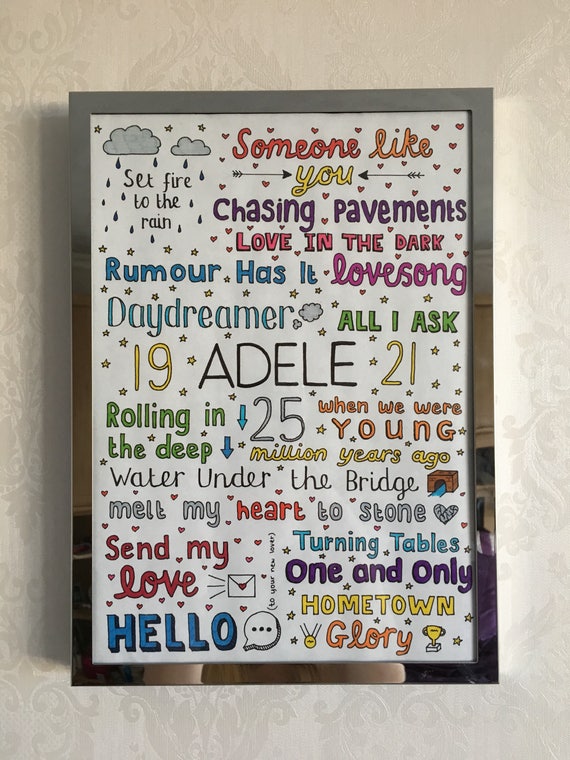 Set fire
to the
rain
Someone like
you
Chasing Pavements
LOVE IN THE DARK
Rumour Has It lovesong
Daydreamer
ALL I ASK
19 ADELE 21
Rolling in
the deep
25
when we were
YOUNG
million years ago
Water Under the Bridge
melt my heart to stone
Send my
love
(to your new lover)
Turning Tables
One and Only
HOMETOWN
Glory
HELLO